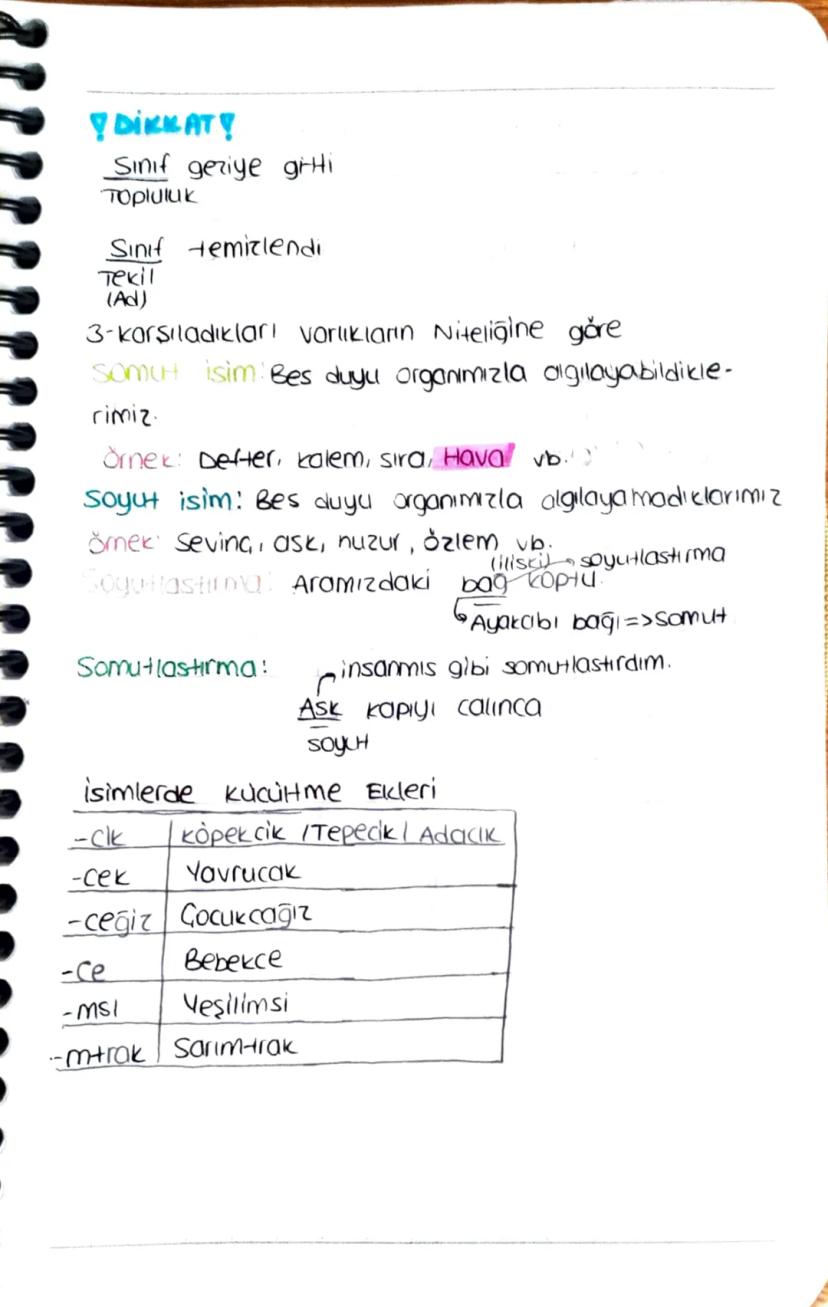 ! DİKKAT !
Sınıf geziye gitti
Topluluk
Sınıf temizlendi
Tekil
(Ad)
3-karsıladıkları varlıkların Niteliğine göre
Somut isim: Bes duyu organımızla algılayabildikle-
rimiz.
Örnek: Defter, kalem, sıra, Hava! vb.
Soyut isim: Bes duyu organımızla algılayamadıklarımız
Örnek: Sevinc, ask, huzur, özlem vb.
(iliski) → soyutlastırma
Soyutlastırma: Aramızdaki bağ koptu.
Ayakabı bağı => Somut
Somutlastırma: insanmıs gibi somutlastırdım.
Ask kapıyı calınca
soyut
isimlerde kücültme Ekleri
-cik | köpekcik / Tepecik / Adacık
-cek | Yavrucak
-ceğiz | Çocukcağız
-ce | Bebekce
-msı | Yeşilimsi
-mtrak | Sarımtrak